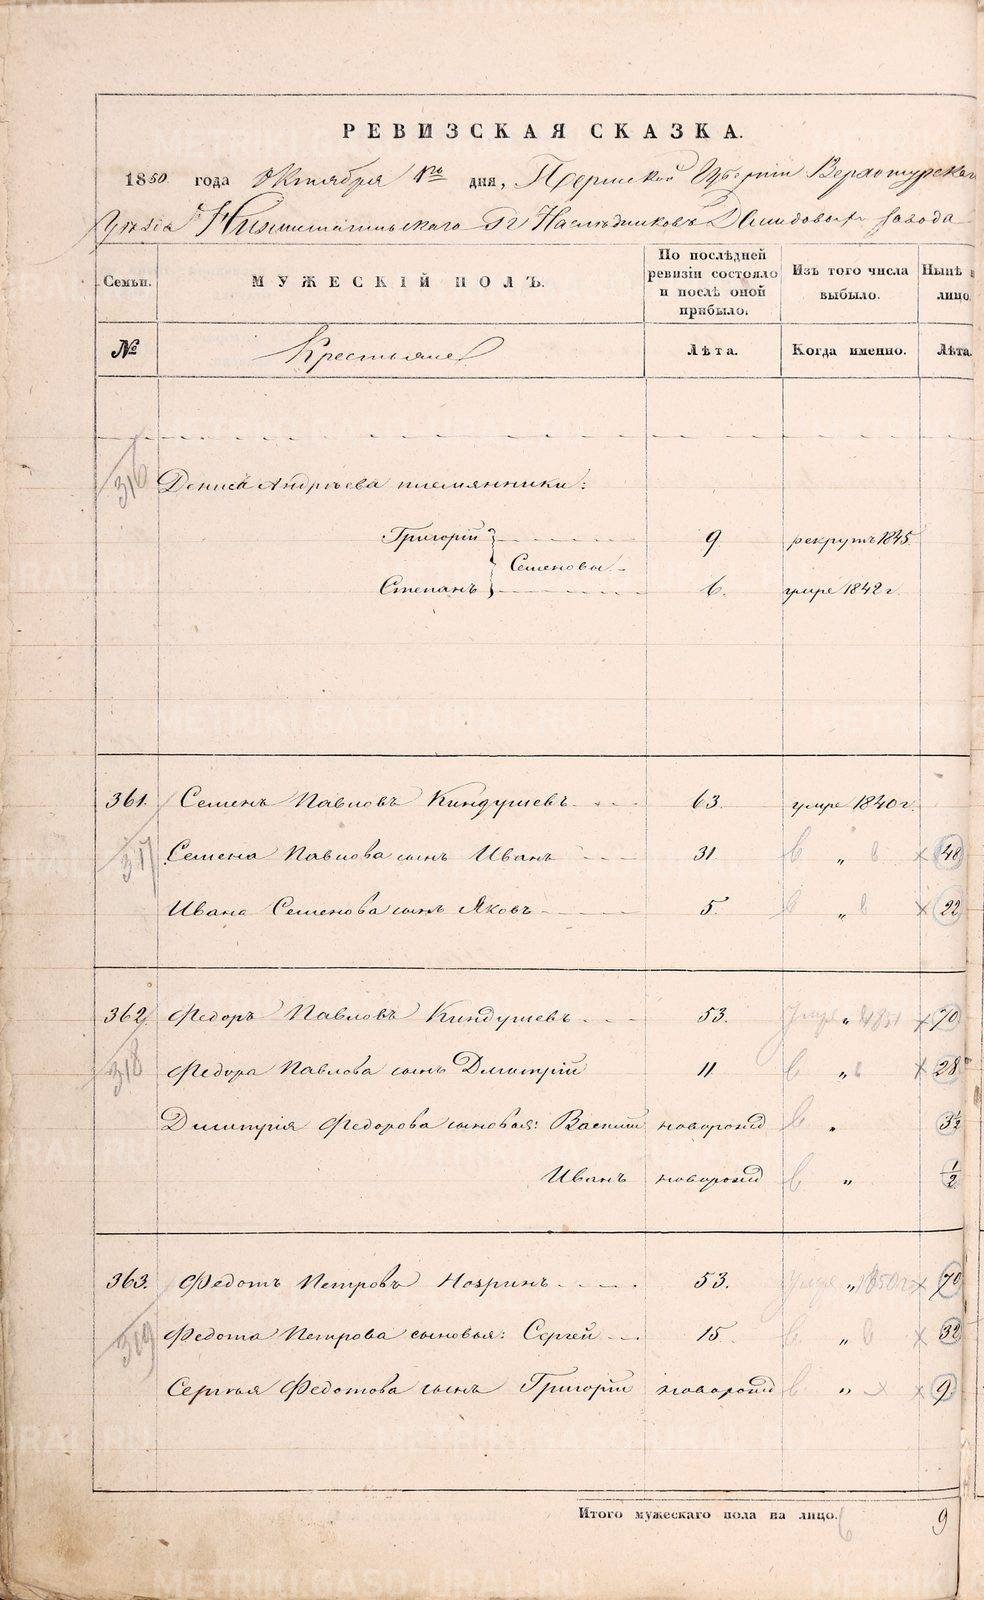 РЕВИЗСКАЯ СКАЗКА.
1850 года Октября 1го дня, Пермской Губерніи Верхотурскаго
Уѣзда Нижнетагильскаго Гг Наслѣдниковъ Демидовыхъ завода
Семьи. МУЖЕСКІЙ ПОЛЪ. По послѣдней ревизіи состояло и послѣ оной прибыло. Изъ того числа выбыло. Нынѣ на лицо
№ Крестьяне Лѣта. Когда именно. Лѣта.
316 Дениса Андрѣева племянники:
Григорій 9. рекрутъ 1845.
Семеновы
Степанъ 6. умре 1842 г.
361. Семенъ Павловъ Киндушевъ 63. умре 1840 г.
317 Семена Павлова сынъ Иванъ 31. в „ в × 48
Ивана Семенова сынъ Яковъ 5. в „ в × 22
362. Федоръ Павловъ Киндушевъ 53. Умре „ 1851 × 70
318 Федора Павлова сынъ Дмитрій 11 в „ в × 28
Дмитрія Федорова сыновья: Василій новорожд в „ 3½
Иванъ новорожд в „ ½
363. Федотъ Петровъ 53. Умре „ 1850 г × 70
319 Федота Петрова сыновья: Сергей 15. в „ в × 32
Сергѣя Федотова сынъ Григорій новорожд в „ × × 9.
Итого мужескаго пола на лицо. 6 9
METRIKI.GASO-URAL.RU